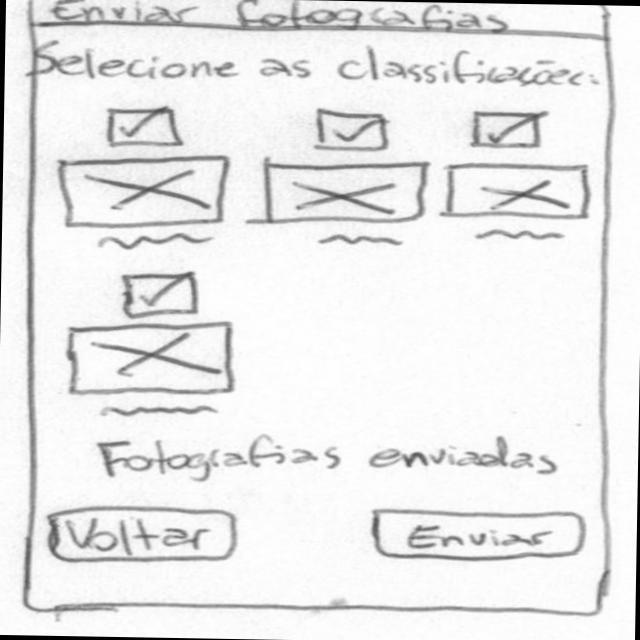 Enviar fotografias
Selecione as classificações:
Fotografias enviadas
Voltar
Enviar